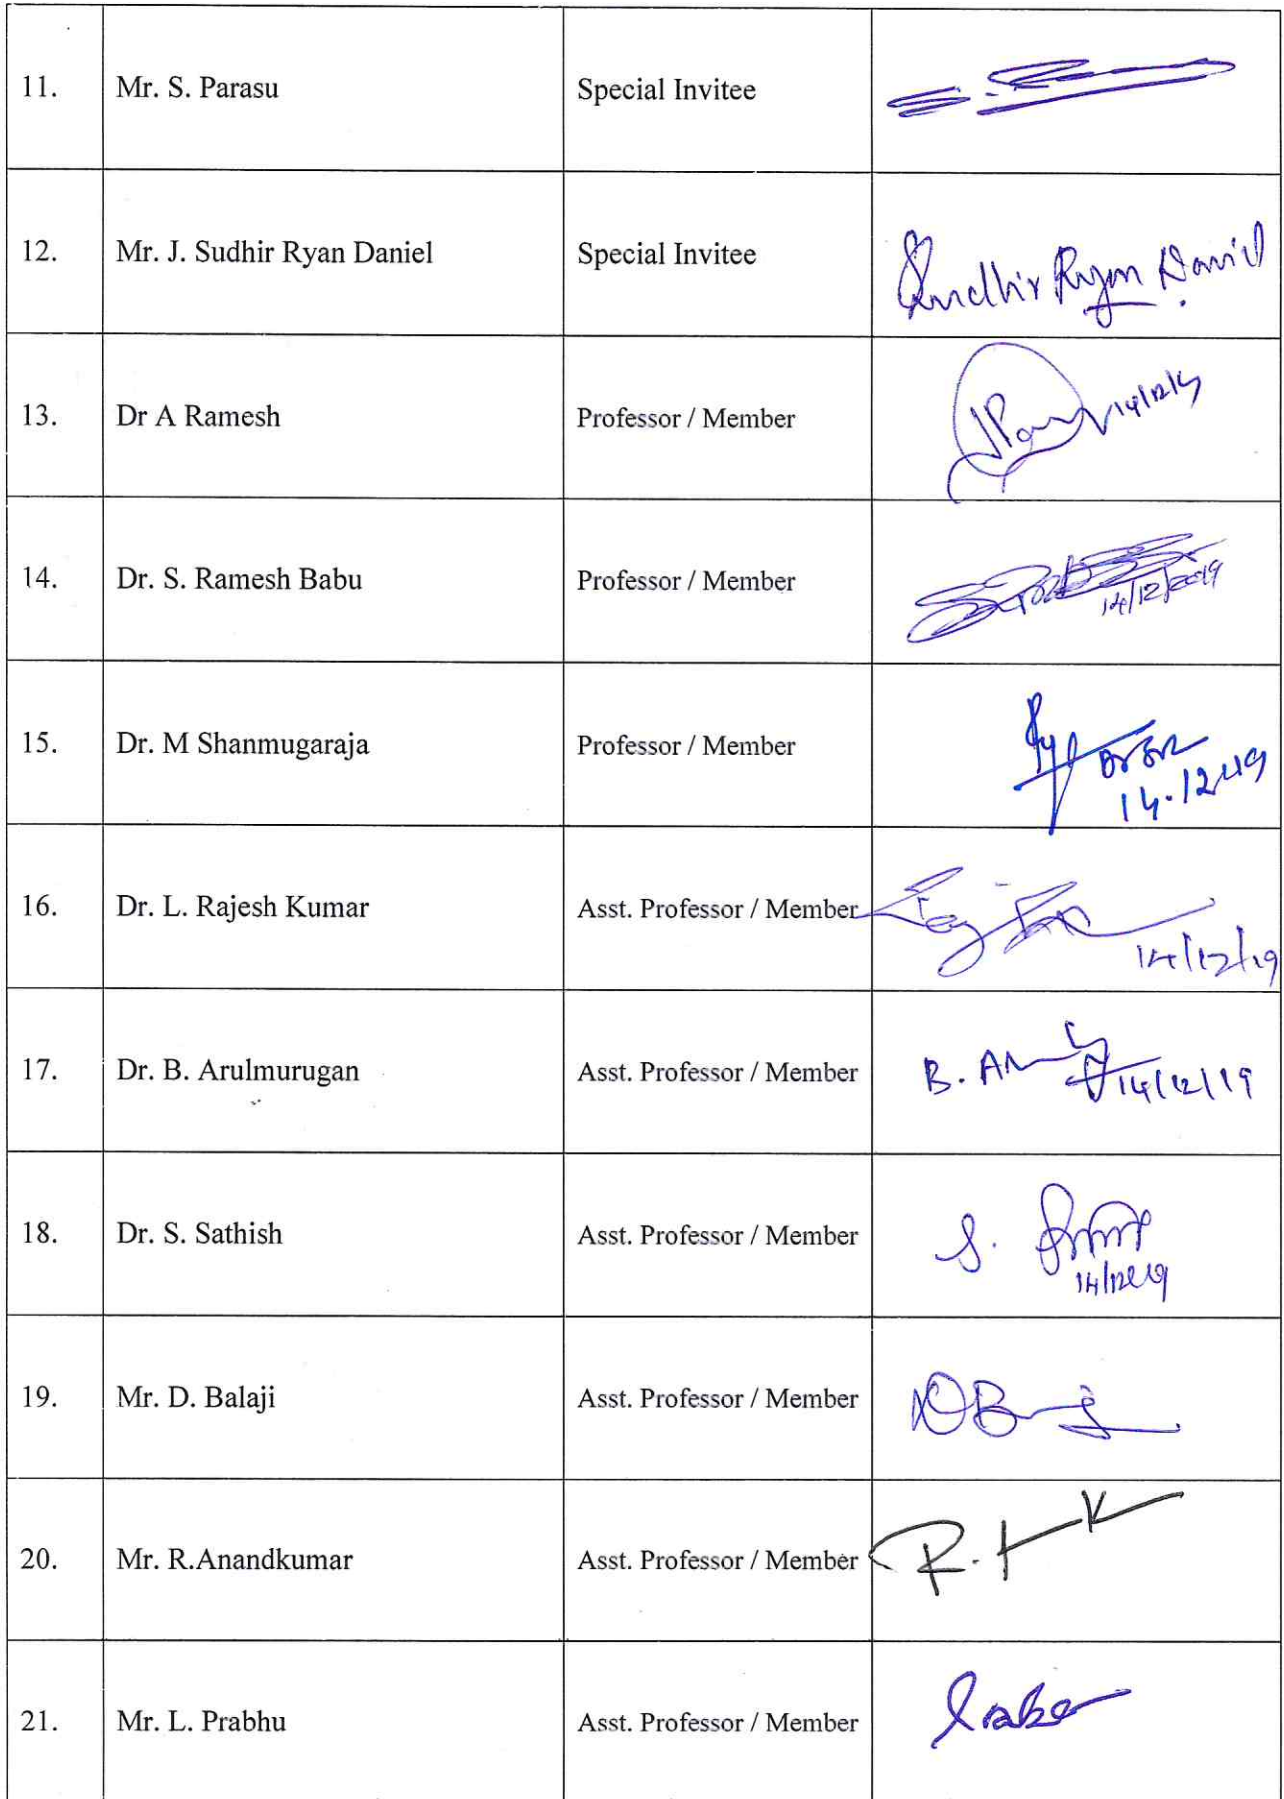 11. Mr. S. Parasu Special Invitee
12. Mr. J. Sudhir Ryan Daniel Special Invitee Sudhir Ryan Daniel
13. Dr A Ramesh Professor / Member 14/12/19
14. Dr. S. Ramesh Babu Professor / Member 14/12/2019
15. Dr. M Shanmugaraja Professor / Member 14.12.19
16. Dr. L. Rajesh Kumar Asst. Professor / Member 14/12/19
17. Dr. B. Arulmurugan Asst. Professor / Member B. 14/12/19
18. Dr. S. Sathish Asst. Professor / Member S. 14/12/19
19. Mr. D. Balaji Asst. Professor / Member
20. Mr. R.Anandkumar Asst. Professor / Member R.
21. Mr. L. Prabhu Asst. Professor / Member